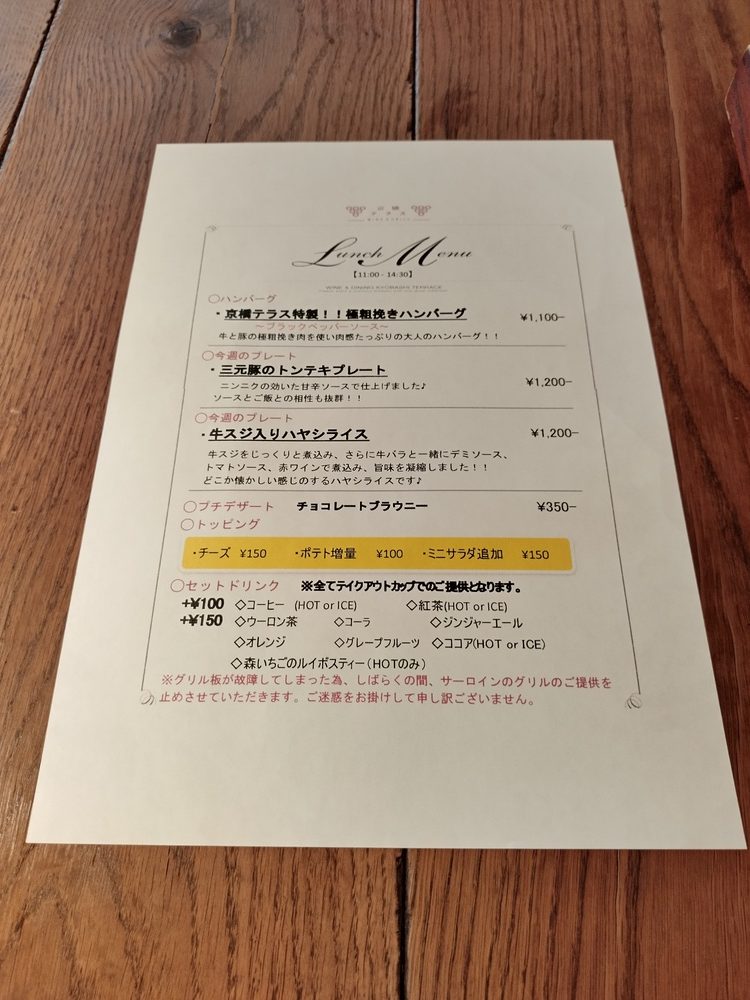 京橋
テラス
Lunch Menu
【11:00 - 14:30】
WINE & DINING KYOBASHI TERRACE
○ハンバーグ
・京橋テラス特製！！極粗挽きハンバーグ ¥1,100−
～ブラックペッパーソース～
牛と豚の極粗挽き肉を使い肉感たっぷりの大人のハンバーグ！！
○今週のプレート
・三元豚のトンテキプレート ¥1,200−
ニンニクの効いた甘辛ソースで仕上げました♪
ソースとご飯との相性も抜群！！
○今週のプレート
・牛スジ入りハヤシライス ¥1,200−
牛スジをじっくりと煮込み、さらに牛バラと一緒にデミソース、
トマトソース、赤ワインで煮込み、旨味を凝縮しました！！
どこか懐かしい感じのするハヤシライスです♪
○プチデザート チョコレートブラウニー ¥350−
○トッピング
・チーズ ¥150 ・ポテト増量 ¥100 ・ミニサラダ追加 ¥150
○セットドリンク ※全てテイクアウトカップでのご提供となります。
+¥100 ◇コーヒー (HOT or ICE) ◇紅茶(HOT or ICE)
+¥150 ◇ウーロン茶 ◇コーラ ◇ジンジャーエール
◇オレンジ ◇グレープフルーツ ◇ココア(HOT or ICE)
◇森いちごのルイボスティー（HOTのみ）
※グリル板が故障してしまった為、しばらくの間、サーロインのグリルのご提供を
止めさせていただきます。ご迷惑をお掛けして申し訳ございません。